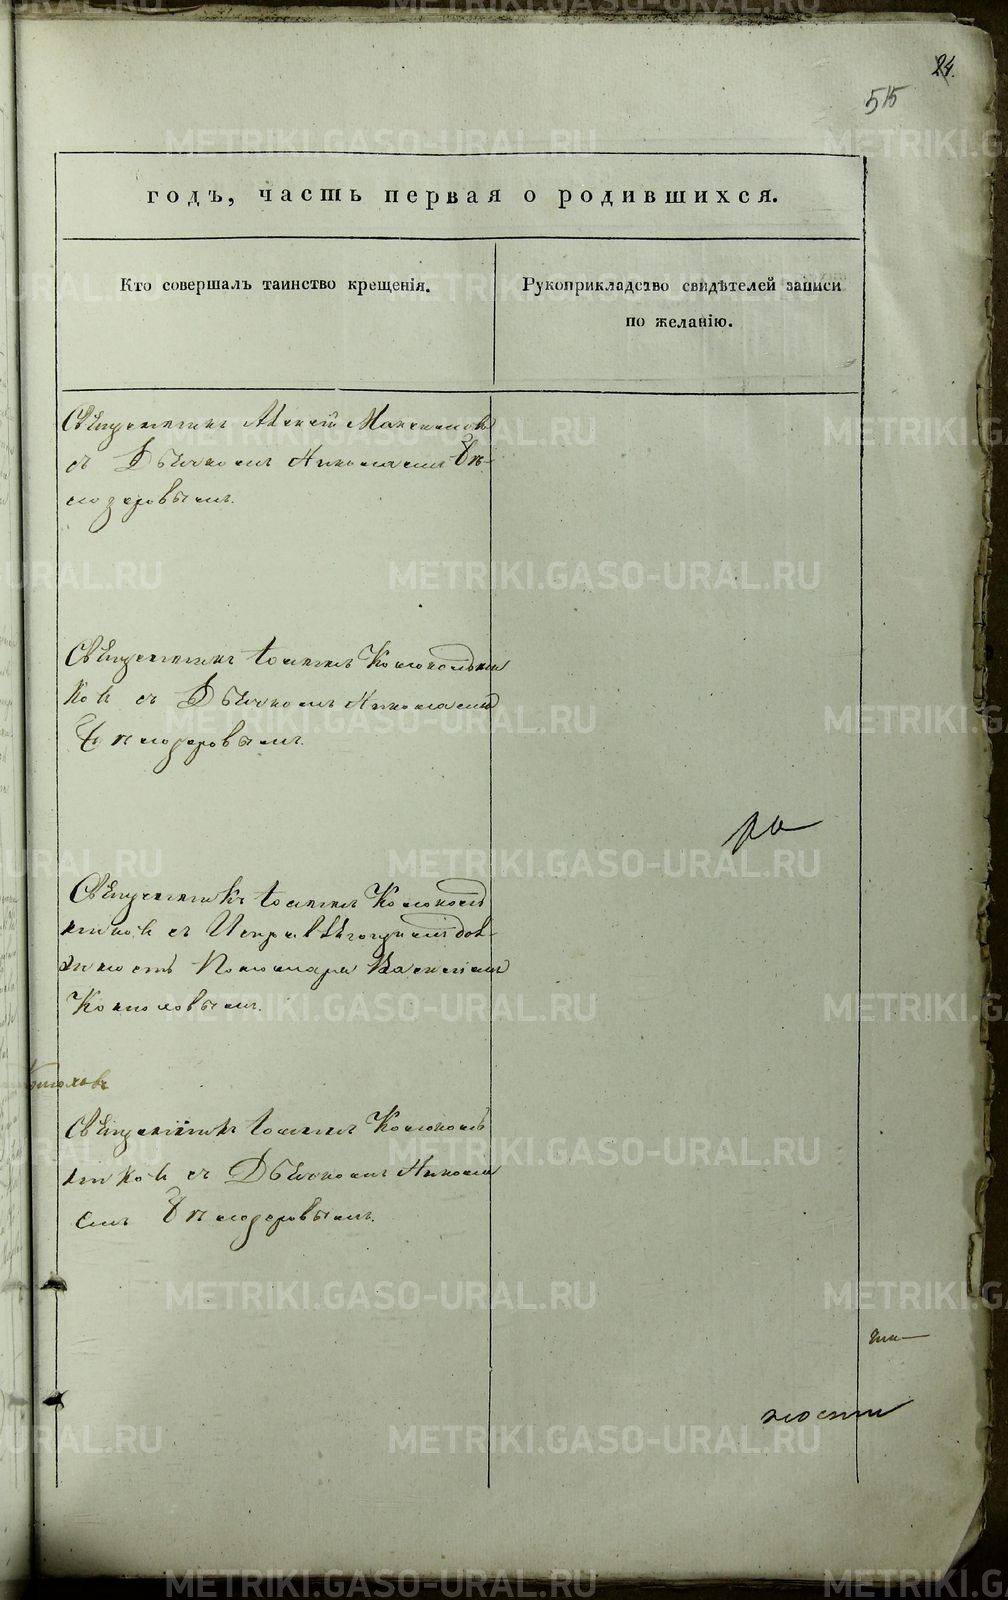 24.
515
годъ, часть первая о родившихся.
Кто совершалъ таинство крещенія.
Рукоприкладство свидѣтелей записи
по желанію.
Священникъ Алексій Максимовъ
съ Дьячкомъ Николаемъ Бѣ-
лозеровымъ.
Священникъ Іоаннъ Колокольни
ковъ съ Дьячкомъ Николаемъ
Бѣлозеровымъ.
ра
Священникъ Іоаннъ Колоколь
никовъ съ Исправляющимъ дол-
жность Пономаря Василіемъ
Коноловымъ.
Священникъ Іоаннъ Колоколь
никовъ съ Дьячкомъ Никола
емъ Бѣлозеровымъ.
ности
METRIKI.GASO-URAL.RU